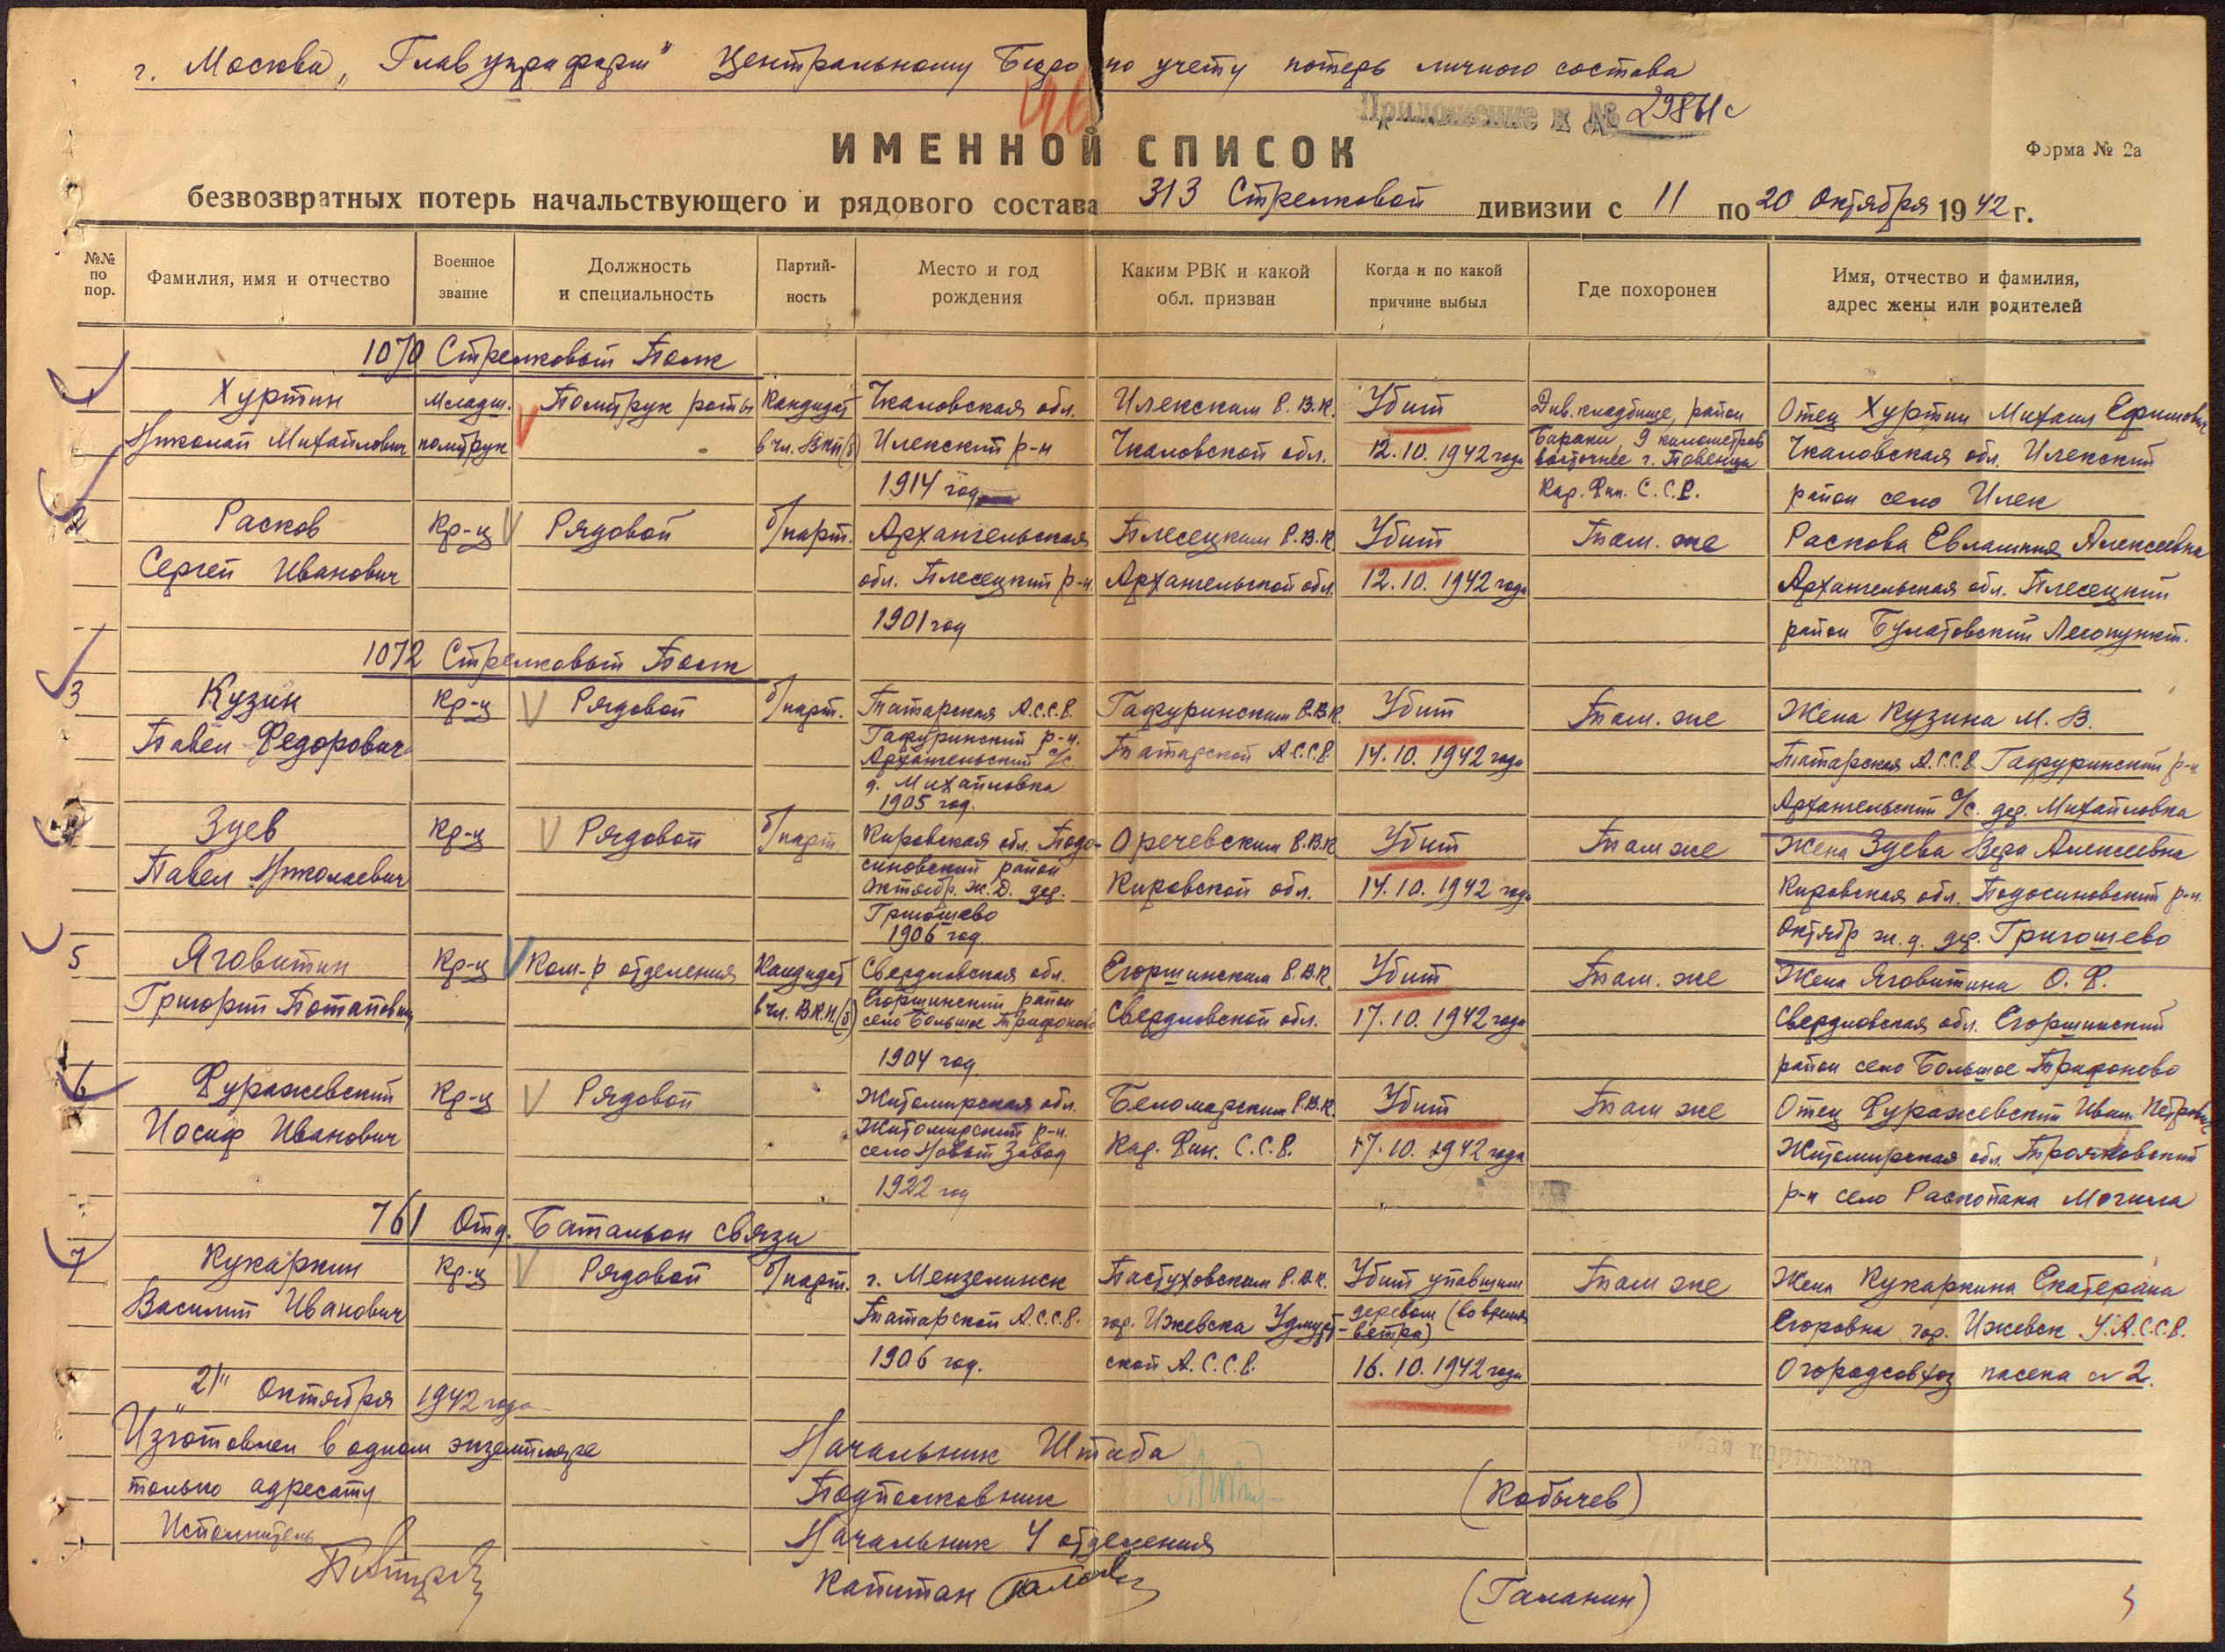 г. Москва, "Главупраформ" Центральному Бюро по учету потерь личного состава
Приложение к № 29861с
ИМЕННОЙ СПИСОК
Форма № 2а
безвозвратных потерь начальствующего и рядового состава 313 Стрелковой дивизии с 11 по 20 Октября 1942 г.
№№ по пор.
Фамилия, имя и отчество
Военное звание
Должность и специальность
Партий-ность
Место и год рождения
Каким РВК и какой обл. призван
Когда и по какой причине выбыл
Где похоронен
Имя, отчество и фамилия, адрес жены или родителей
1070 Стрелковый Полк
1
Хуртин
Николай Михайлович
Младш.
политрук
Политрук роты
Кандидат
в чл. ВКП(б)
Чкаловская обл.
Илекский р-н
1914 год
Илекским Р.В.К.
Чкаловской обл.
Убит
12.10.1942 года
Див. кладбище, район
Бараки, 9 километров
восточнее г. Повенца
Кар. Фин. С.С.Р.
Отец Хуртин Михаил Ефимович
Чкаловская обл. Илекский
район село Илек
2
Расков
Сергей Иванович
Кр-ц
Рядовой
б/парт.
Архангельская
обл. Плесецкий р-н
1901 год
Плесецким Р.В.К.
Архангельской обл.
Убит
12.10.1942 года
Там-же
Раскова Евлампия Алексеевна
Архангельская обл. Плесецкий
район Булатовский Лесопункт.
1072 Стрелковый Полк
3
Кузин
Павел Федорович
Кр-ц
Рядовой
б/парт.
Татарская А.С.С.Р.
Гафуринский р-н.
Архангельский с/с
д. Михайловка
1905 год.
Гафуринским Р.В.К.
Татарской А.С.С.Р.
Убит
14.10.1942 года
Там-же
Жена Кузина М. В.
Татарская А.С.С.Р. Гафуринский р-н
Архангельский с/с. дер. Михайловка
Зуев
Павел Николаевич
Кр-ц
Рядовой
б/парт
Кировская обл. Подо-
синовский район
Октябр. ж.д. дер.
Григошево
1906 год.
Оречевским Р.В.К.
Кировской обл.
Убит
14.10.1942 года
Там же
Жена Зуева Вера Алексеевна
Кировская обл. Подосиновский р-н.
Октябр ж.д. дер. Григошево
5
Яговитин
Григорий Потапович
Кр-ц
Ком-р отделения
Кандидат
в чл. В.К.П.(б)
Свердловская обл.
Егоршинский район
село Большое Трифоново
1904 год
Егоршинским Р.В.К.
Свердловской обл.
Убит
17.10.1942 года
Там-же
Жена Яговитина О. Ф.
Свердловская обл. Егоршинский
район село Большое Трифоново
6
Фуражевский
Иосиф Иванович
Кр-ц
Рядовой
Житомирская обл.
Житомирский р-н.
село Новый Завод
1922 год
Беломорским Р.В.К.
Кар. Фин. С.С.Р.
Убит
17.10.1942 года
Там же
Отец Фуражевский Иван Петрович
Житомирская обл. Трояновский
р-н село Раскопана Могила
761 Отд. Батальон связи
7
Кукаркин
Василий Иванович
Кр-ц
Рядовой
б/парт.
г. Мензелинск
Татарской А.С.С.Р.
1906 год.
Пастуховским Р.В.К.
гор. Ижевска Удмурт-
ской А.С.С.Р.
Убит упавшим
деревом (во время
ветра)
16.10.1942 года
Там же
Жена Кукаркина Екатерина
Егоровна гор. Ижевск У.А.С.С.Р.
Огородсовхоз пасека № 2.
"21" Октября 1942 года
Изготовлен в одном экземпляре
только адресату
Исполнитель
Начальник Штаба
Подполковник
(Кобычев)
Начальник 4 отделения
Капитан
(Галанин)